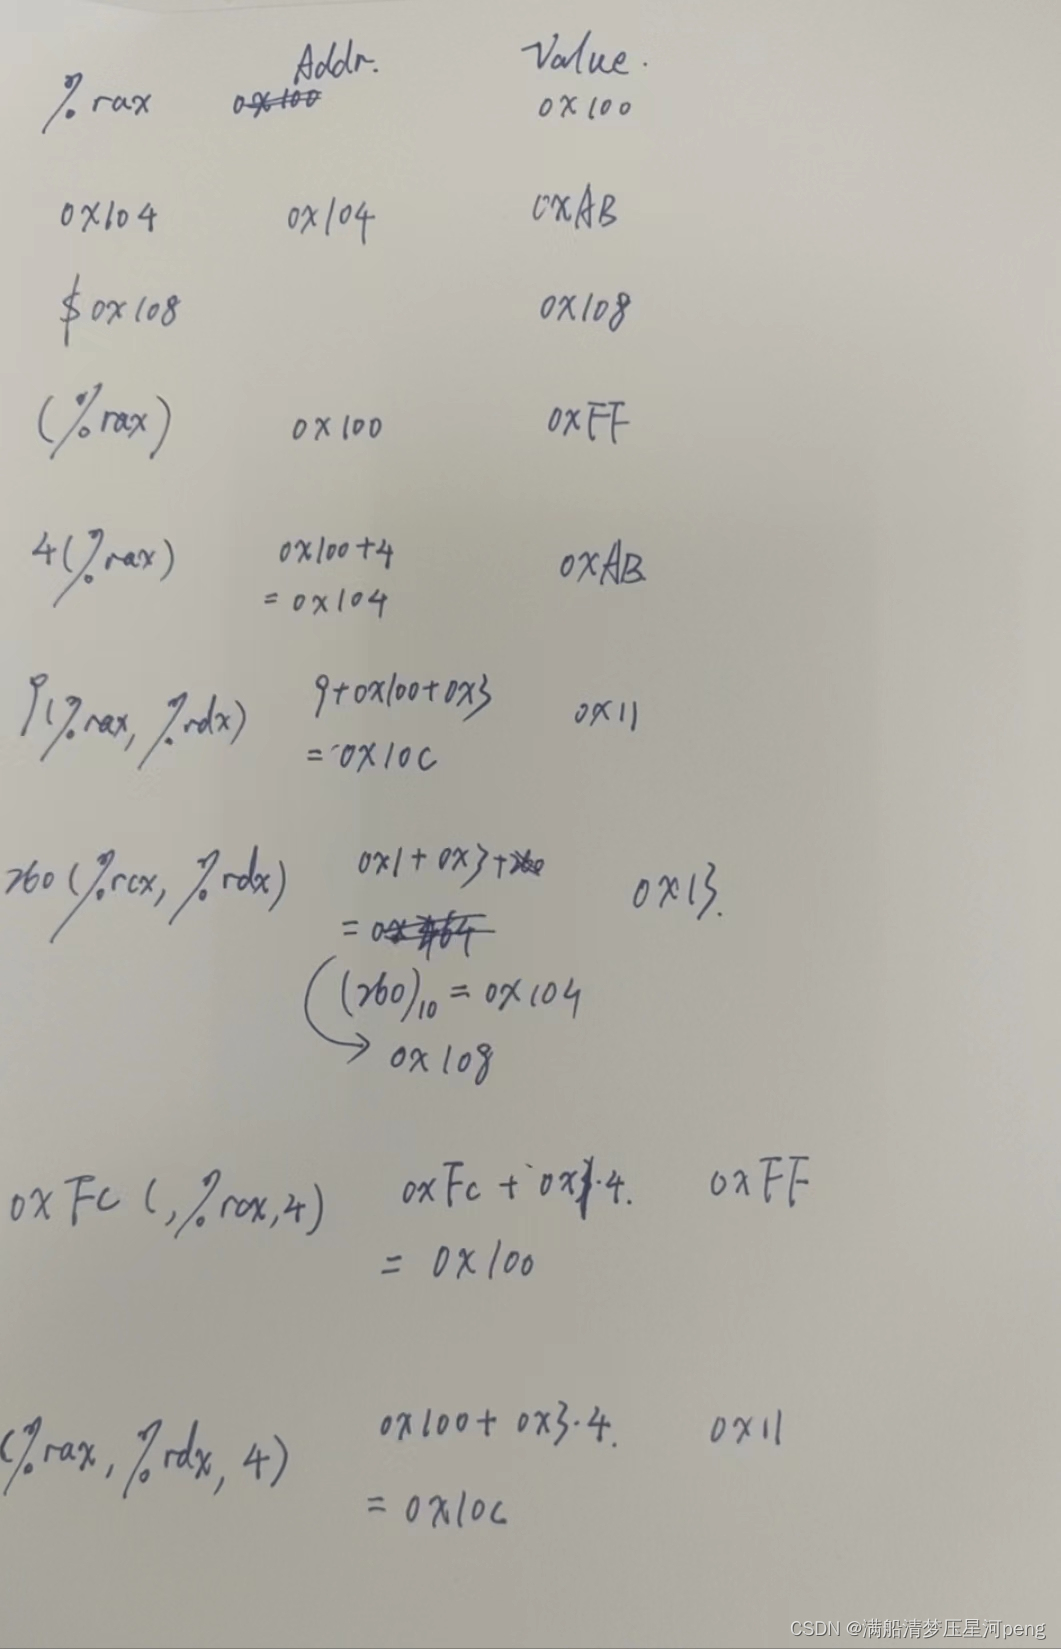 Addr. Value.
%rax 0x100 0x100
0x104 0x104 0xAB
$0x108 0x108
(%rax) 0x100 0xFF
4(%rax) 0x100+4 0xAB
= 0x104
9(%rax, %rdx) 9+0x100+0x3 0x11
= 0x10C
260(%rcx, %rdx) 0x1+0x3+260 0x13.
= 0x464
(260)10 = 0x104
0x108
0xFC(,%rcx,4) 0xFC + 0x1·4. 0xFF
= 0x100
(%rax, %rdx, 4) 0x100+ 0x3·4. 0x11
= 0x10C
CSDN @满船清梦压星河peng